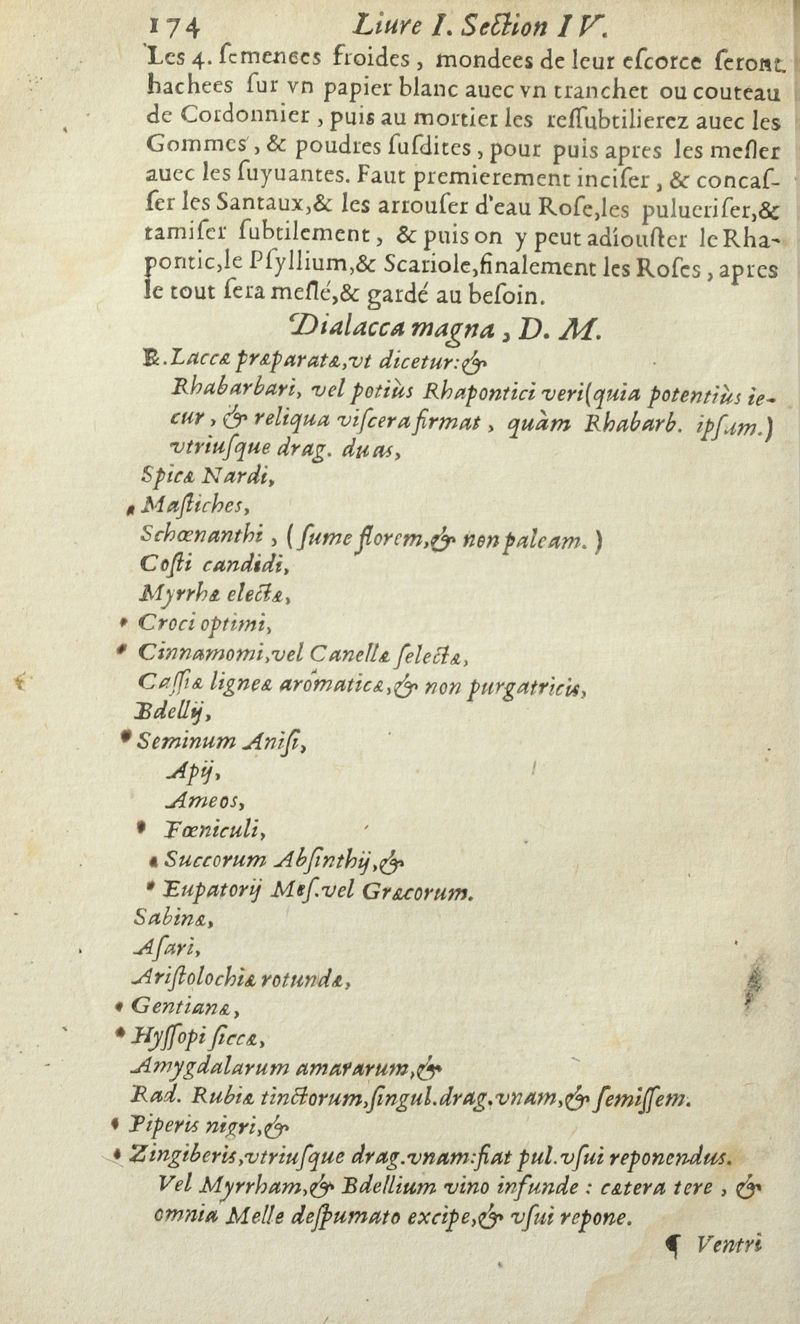 174 Liure I. Section IV.
Les 4. semences froides, mondees de leur escorce seront
hachees sur vn papier blanc auec vn tranchet ou couteau
de Cordonnier, puis au mortier les ressubtilierez auec les
Gommes, & poudres susdites, pour puis apres les mesler
auec les suyuantes. Faut premierement inciser, & concas-
ser les Santaux,& les arrouser d'eau Rose,les pulueriser,&
tamiser subtilement, & puis on y peut adiouster le Rha-
pontic,le Psyllium,& Scariole,finalement les Roses, apres
le tout sera meslé,& gardé au besoin.
Dialacca magna, D. M.
℞.Laccæ præparatæ,vt dicetur:&
Rhabarbari, vel potiùs Rhapontici veri(quia potentiùs ie-
cur, & reliqua viscera firmat, quàm Rhabarb. ipsum.)
vtriusque drag. duas,
Spicæ Nardi,
Mastiches,
Schœnanthi, (sume florem,& non paleam.)
Costi candidi,
Myrrhæ electæ,
Croci optimi,
Cinnamomi,vel Canellæ selectæ,
Cassiæ ligneæ aromaticæ,& non purgatricis,
Bdellij,
Seminum Anisi,
Apij,
Ameos,
Fœniculi,
Succorum Absinthij,&
Eupatorij Mes.vel Græcorum.
Sabinæ,
Asari,
Aristolochiæ rotundæ,
Gentianæ,
Hyssopi siccæ,
Amygdalarum amararum,&
Rad. Rubiæ tinctorum,singul.drag.vnam,& semissem.
Piperis nigri,&
Zingiberis,vtriusque drag.vnam:fiat pul.vsui reponendus.
Vel Myrrham,& Bdellium vino infunde : cætera tere, &
omnia Melle despumato excipe,& vsui repone.
¶ Ventri